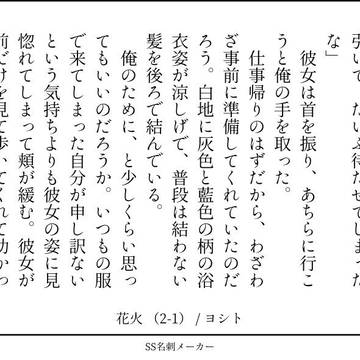 引いて、だいぶ待たせてしまった
な」
彼女は首を振り、あちらに行こ
うと俺の手を取った。
仕事帰りのはずだから、わざわ
ざ事前に準備してくれていたのだ
ろう。白地に灰色と藍色の柄の浴
衣姿が涼しげで、普段は結わない
髪を後ろで結んでいる。
俺のために、と少しくらい思っ
てもいいのだろうか。いつもの服
で来てしまった自分が申し訳ない
という気持ちよりも彼女の姿に見
惚れてしまって頬が緩む。彼女が
前だけを見て歩いてくれて助かっ
花火 （2-1） / ヨシト
SS名刺メーカー